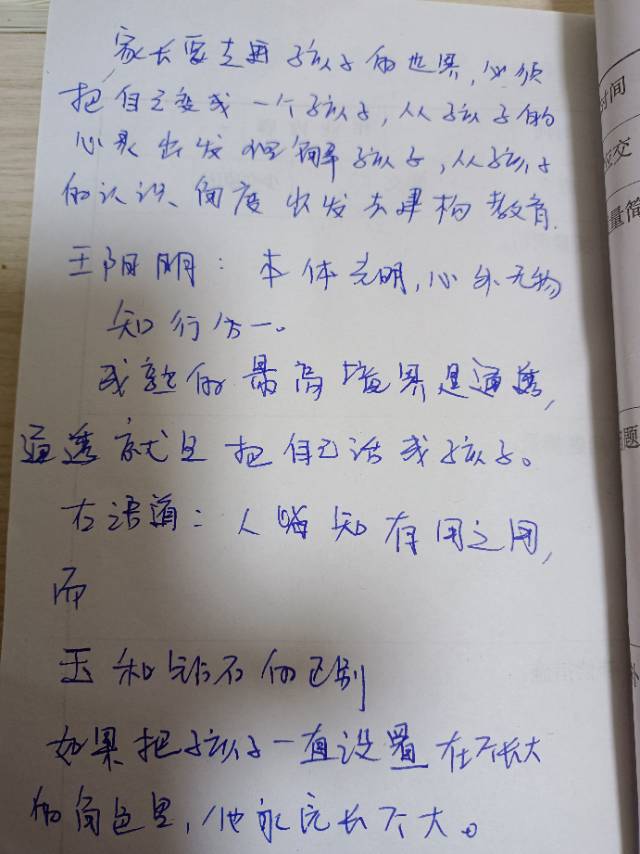 家长要走进孩子的世界,必须
把自己变成一个孩子,从孩子的
心灵出发理解孩子,从孩子
的认识、角度出发去建构教育.
王阳明:本体光明,心外无物
知行合一。
成熟的最高境界是通透,
通透就是把自己活成孩子。
古语道:人皆知有用之用,
而
玉和钻石的区别
如果把孩子一直设置在不长大
的角色里,他永远长不大。
时间
交
量简
题